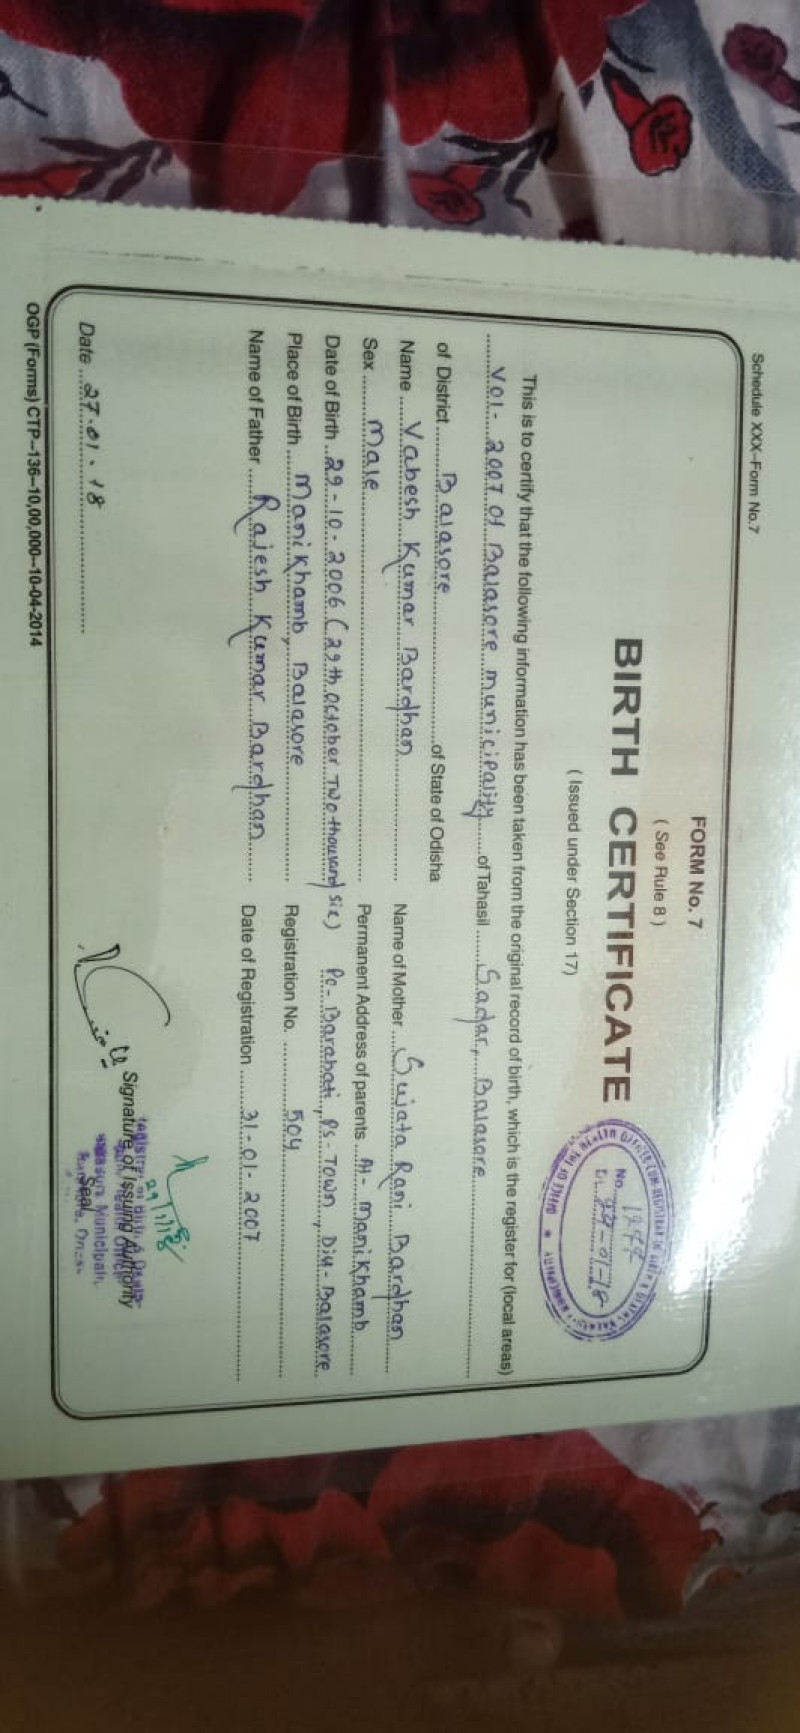 Schedule XXX–Form No.7
FORM No. 7
( See Rule 8 )
BIRTH CERTIFICATE
( Issued under Section 17)
No. 1244
Dt. 29-01-18
This is to certify that the following information has been taken from the original record of birth, which is the register for (local areas)
VOI - 2007 of Balasore municipality of Tahasil Sadar, Balasore
of District Balasore of State of Odisha
Name Vabesh Kumar Bardhan Name of Mother Sujata Rani Bardhan
Sex male Permanent Address of parents At- Manikhamb
Date of Birth 29-10-2006 (29th october Two thousand six) Po- Barabati, Ps- Town, Dist- Balasore
Place of Birth Manikhamb, Balasore Registration No. 504
Name of Father Rajesh Kumar Bardhan Date of Registration 31-01-2007
Date 27.01.18
Signature of Issuing Authority
Seal
OGP (Forms) CTP–136–10,00,000–10-04-2014